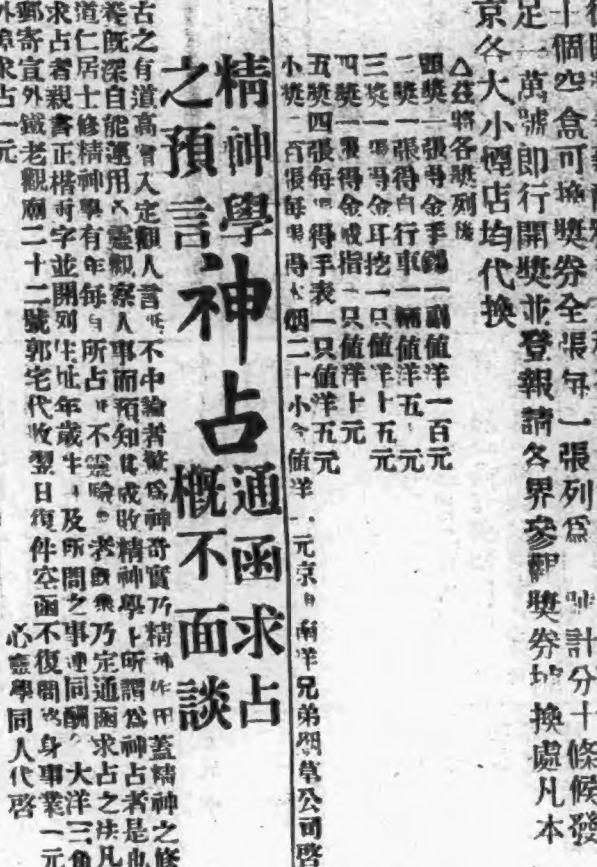 十個空盒可換獎券全張每一張列爲 號計分十條候發
足一萬號即行開獎並登報請各界參觀獎券 換處凡本
京各大小煙店均代換
△茲將各獎列後
頭獎一張得金手鐲一副值洋一百元
二獎一張得自行車一輛值洋五 元
三獎一 得金耳挖一只值洋十五元
四獎一張得金戒指一只值洋十元
五獎四張每 得手表一只值洋五元
小獎二百張每 得大 烟二十小 值洋 元京 南洋兄弟烟草公司啓
精神學之預言
神占
通函求占概不面談
古之有道高 入定觀人言 不中論者驚爲神奇實乃精神作用蓋精神之修
養旣深自能運用 靈觀察人事而預知其成敗精神學上所謂爲神占者是也
道仁居士修精神學有年每 所占 不靈驗 求者旣衆乃定通函求占之法凡
求占者親書正楷 字並開列住址年歲 及所問之事連同酬 大洋三角
郵寄宣外鐵老觀廟二十二號郭宅代收翌日復件空函不復問終身事業一元
外埠求占一元
心靈學同人代啓